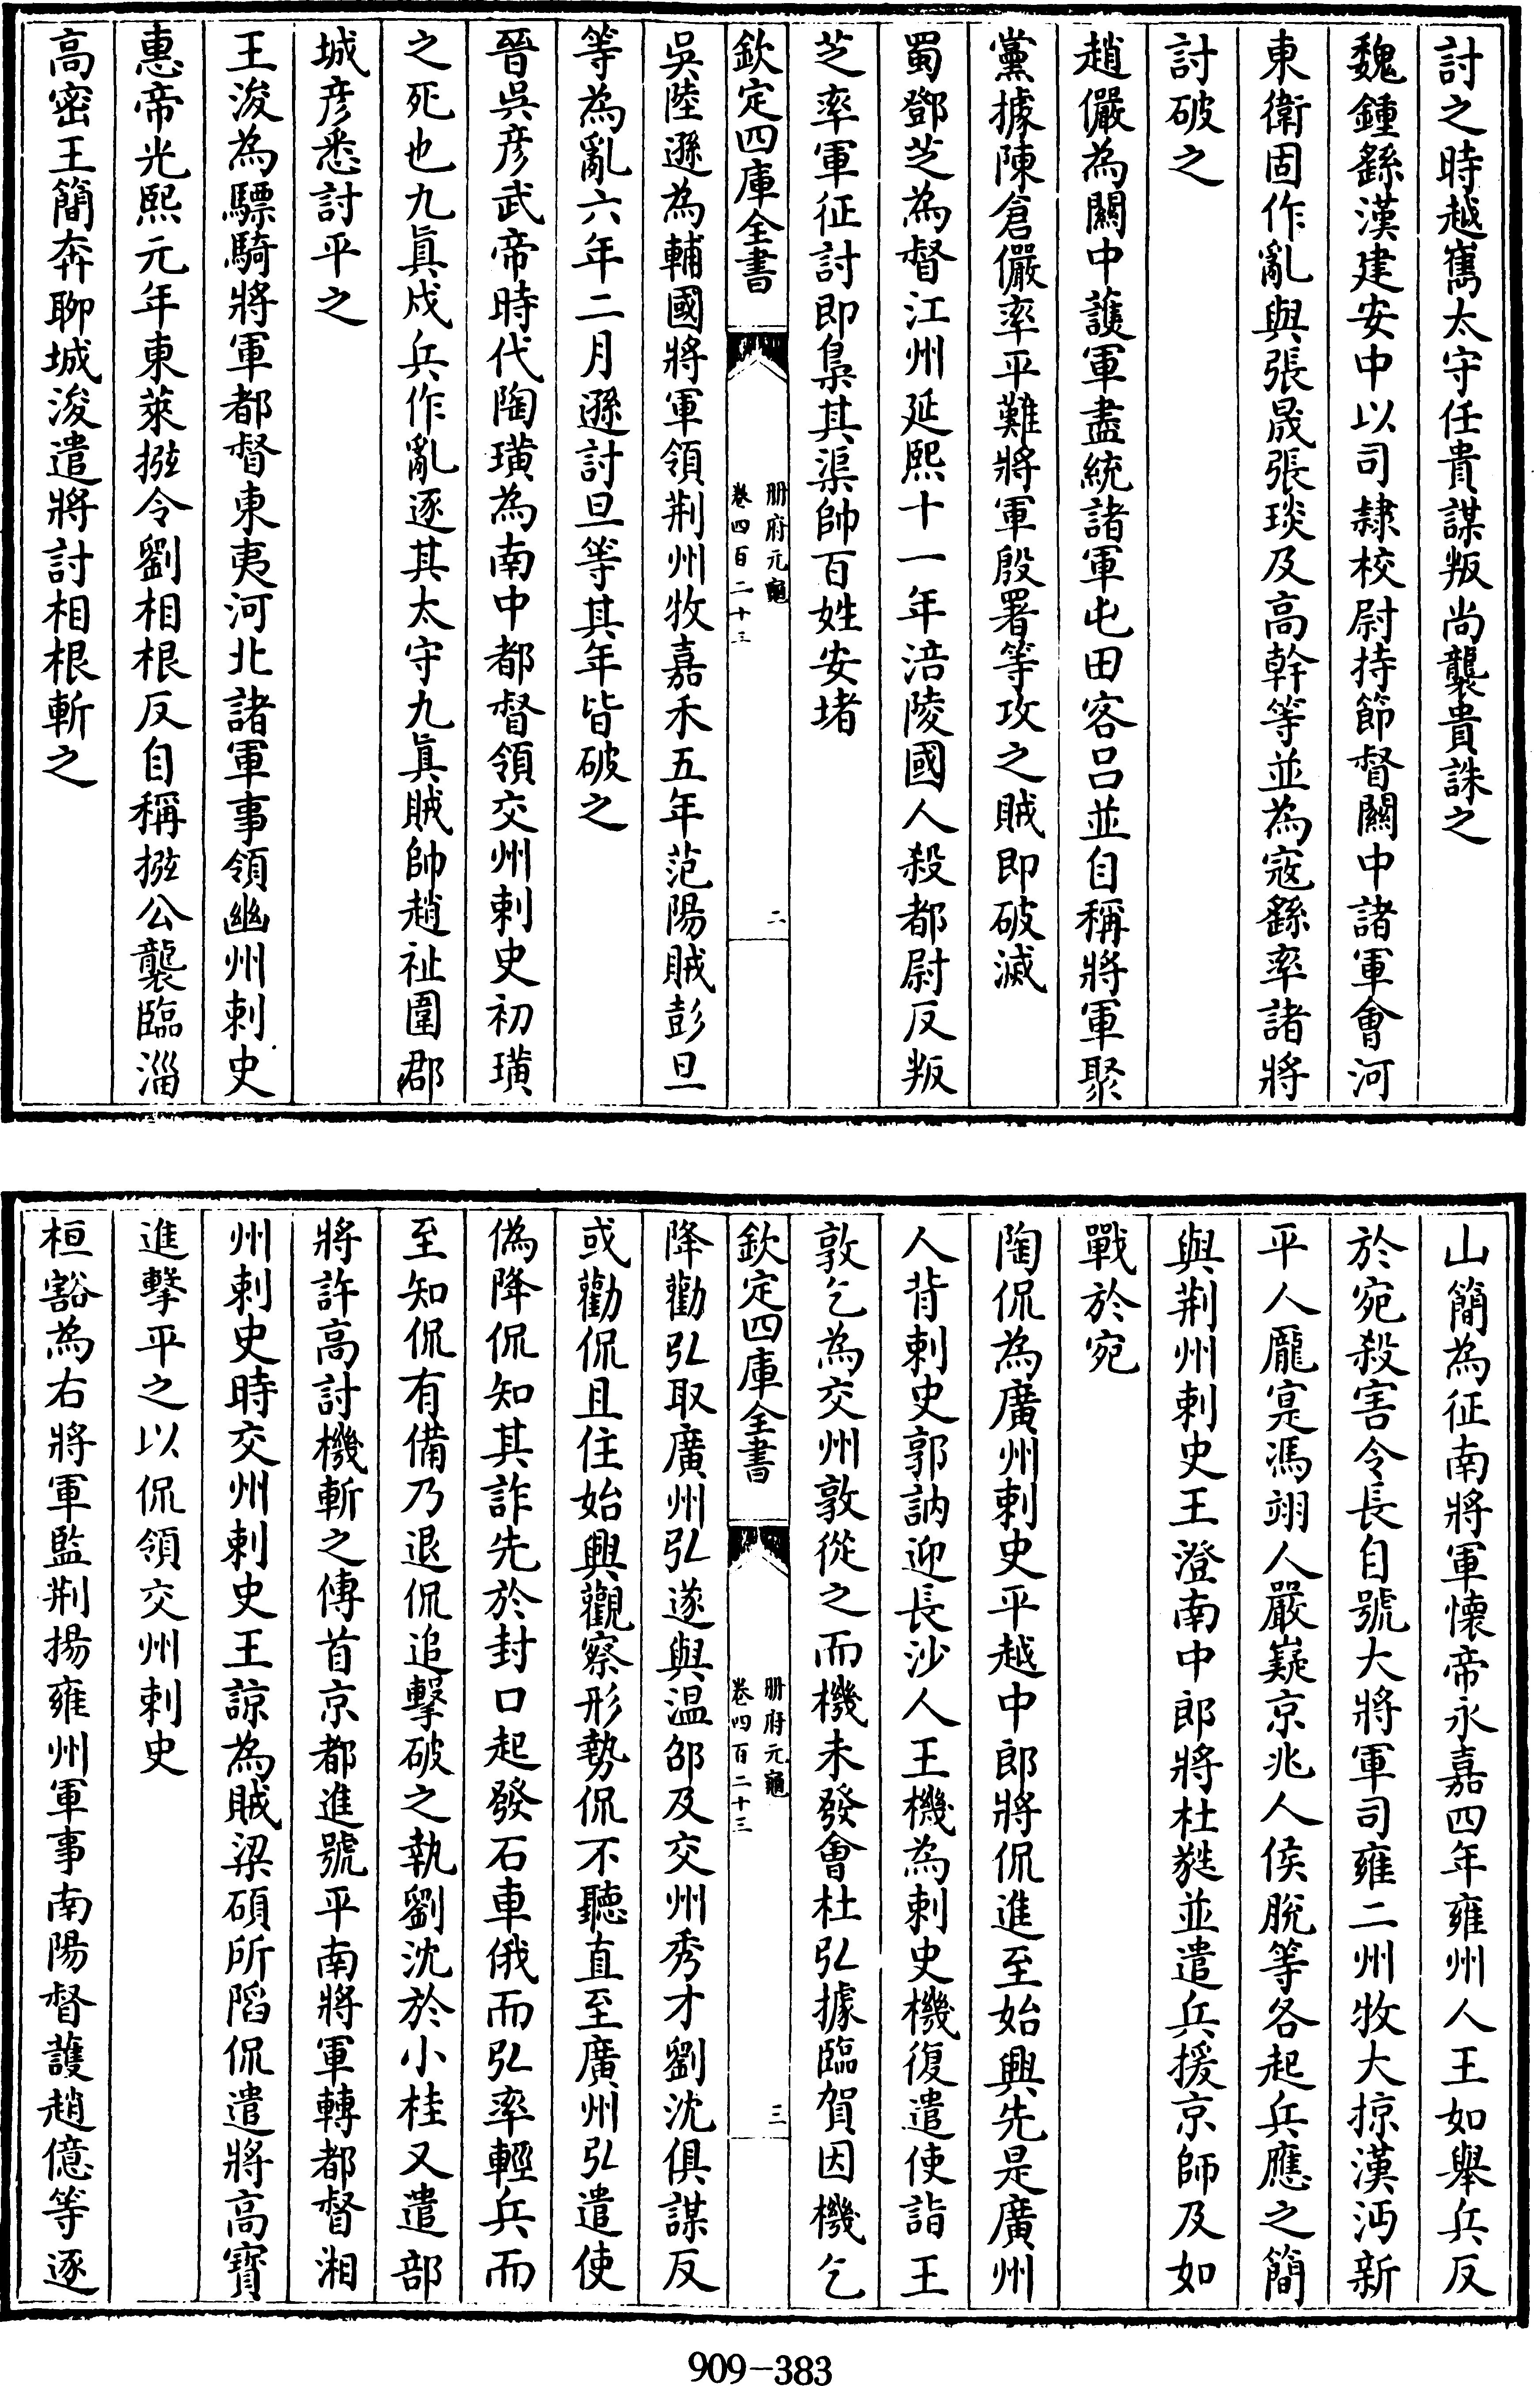 討之時越嶲太守任貴謀叛尚襲貴誅之
魏鍾繇漢建安中以司隷校尉持節督關中諸軍會河
東衛固作亂與張晟張琰及高幹等並為寇繇率諸將
討破之
趙儼為關中護軍盡統諸軍屯田客吕並自稱將軍聚
黨據陳倉儼率平難將軍殷署等攻之賊即破滅
蜀鄧芝為督江州延熙十一年涪陵國人殺都尉反叛
芝率軍征討即梟其渠帥百姓安堵
欽定四庫全書
册府元龜
卷四百二十三
二
吳陸遜為輔國將軍領荆州牧嘉禾五年范陽賊彭旦
等為亂六年二月遜討旦等其年皆破之
晉吳彦武帝時代陶璜為南中都督領交州刺史初璜
之死也九真戍兵作亂逐其太守九真賊帥趙祉圍郡
城彦悉討平之
王浚為驃騎將軍都督東夷河北諸軍事領幽州刺史
惠帝光熙元年東萊㨃令劉相根反自稱㨃公襲臨淄
高密王簡奔聊城浚遣將討相根斬之
山簡為征南將軍懐帝永嘉四年雍州人王如舉兵反
於宛殺害令長自號大將軍司雍二州牧大掠漢沔新
平人龎寔馮翊人嚴嶷京兆人侯脫等各起兵應之簡
與荆州刺史王澄南中郎將杜㽔並遣兵援京師及如
戰於宛
陶侃為廣州刺史平越中郎將侃進至始興先是廣州
人背刺史郭訥迎長沙人王機為刺史機復遣使詣王
敦乞為交州敦從之而機未發會杜弘據臨賀因機乞
欽定四庫全書
册府元龜
卷四百二十三
三
降勸弘取廣州弘遂與温邵及交州秀才劉沈俱謀反
或勸侃且住始興觀察形勢侃不聽直至廣州弘遣使
偽降侃知其詐先於封口起發石車俄而弘率輕兵而
至知侃有備乃退侃追擊破之執劉沈於小桂又遣部
將許高討機斬之傳首京都進號平南將軍轉都督湘
州刺史時交州刺史王諒為賊梁碩所陷侃遣將高寶
進擊平之以侃領交州刺史
桓豁為右將軍監荆揚雍州軍事南陽督護趙億等逐
909-383